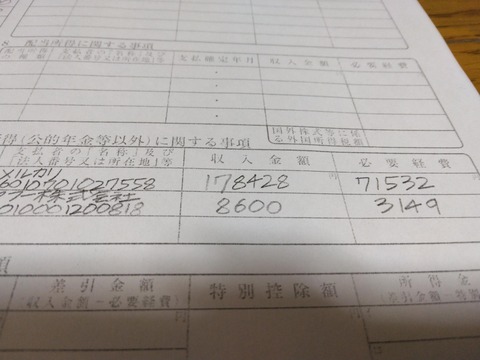 配当所得に関する事項
支払確定年月 収入金額 必要経費
(公的年金等以外)に関する事項
国外株式等に係る外国所得税額
支払者の「名称」及び「法人番号又は所在地」等 収入金額 必要経費
メルカリ 178428 71532
6010701027558
株式会社 8600 3149
010001200818
差引金額
(収入金額-必要経費)
特別控除額
所得金